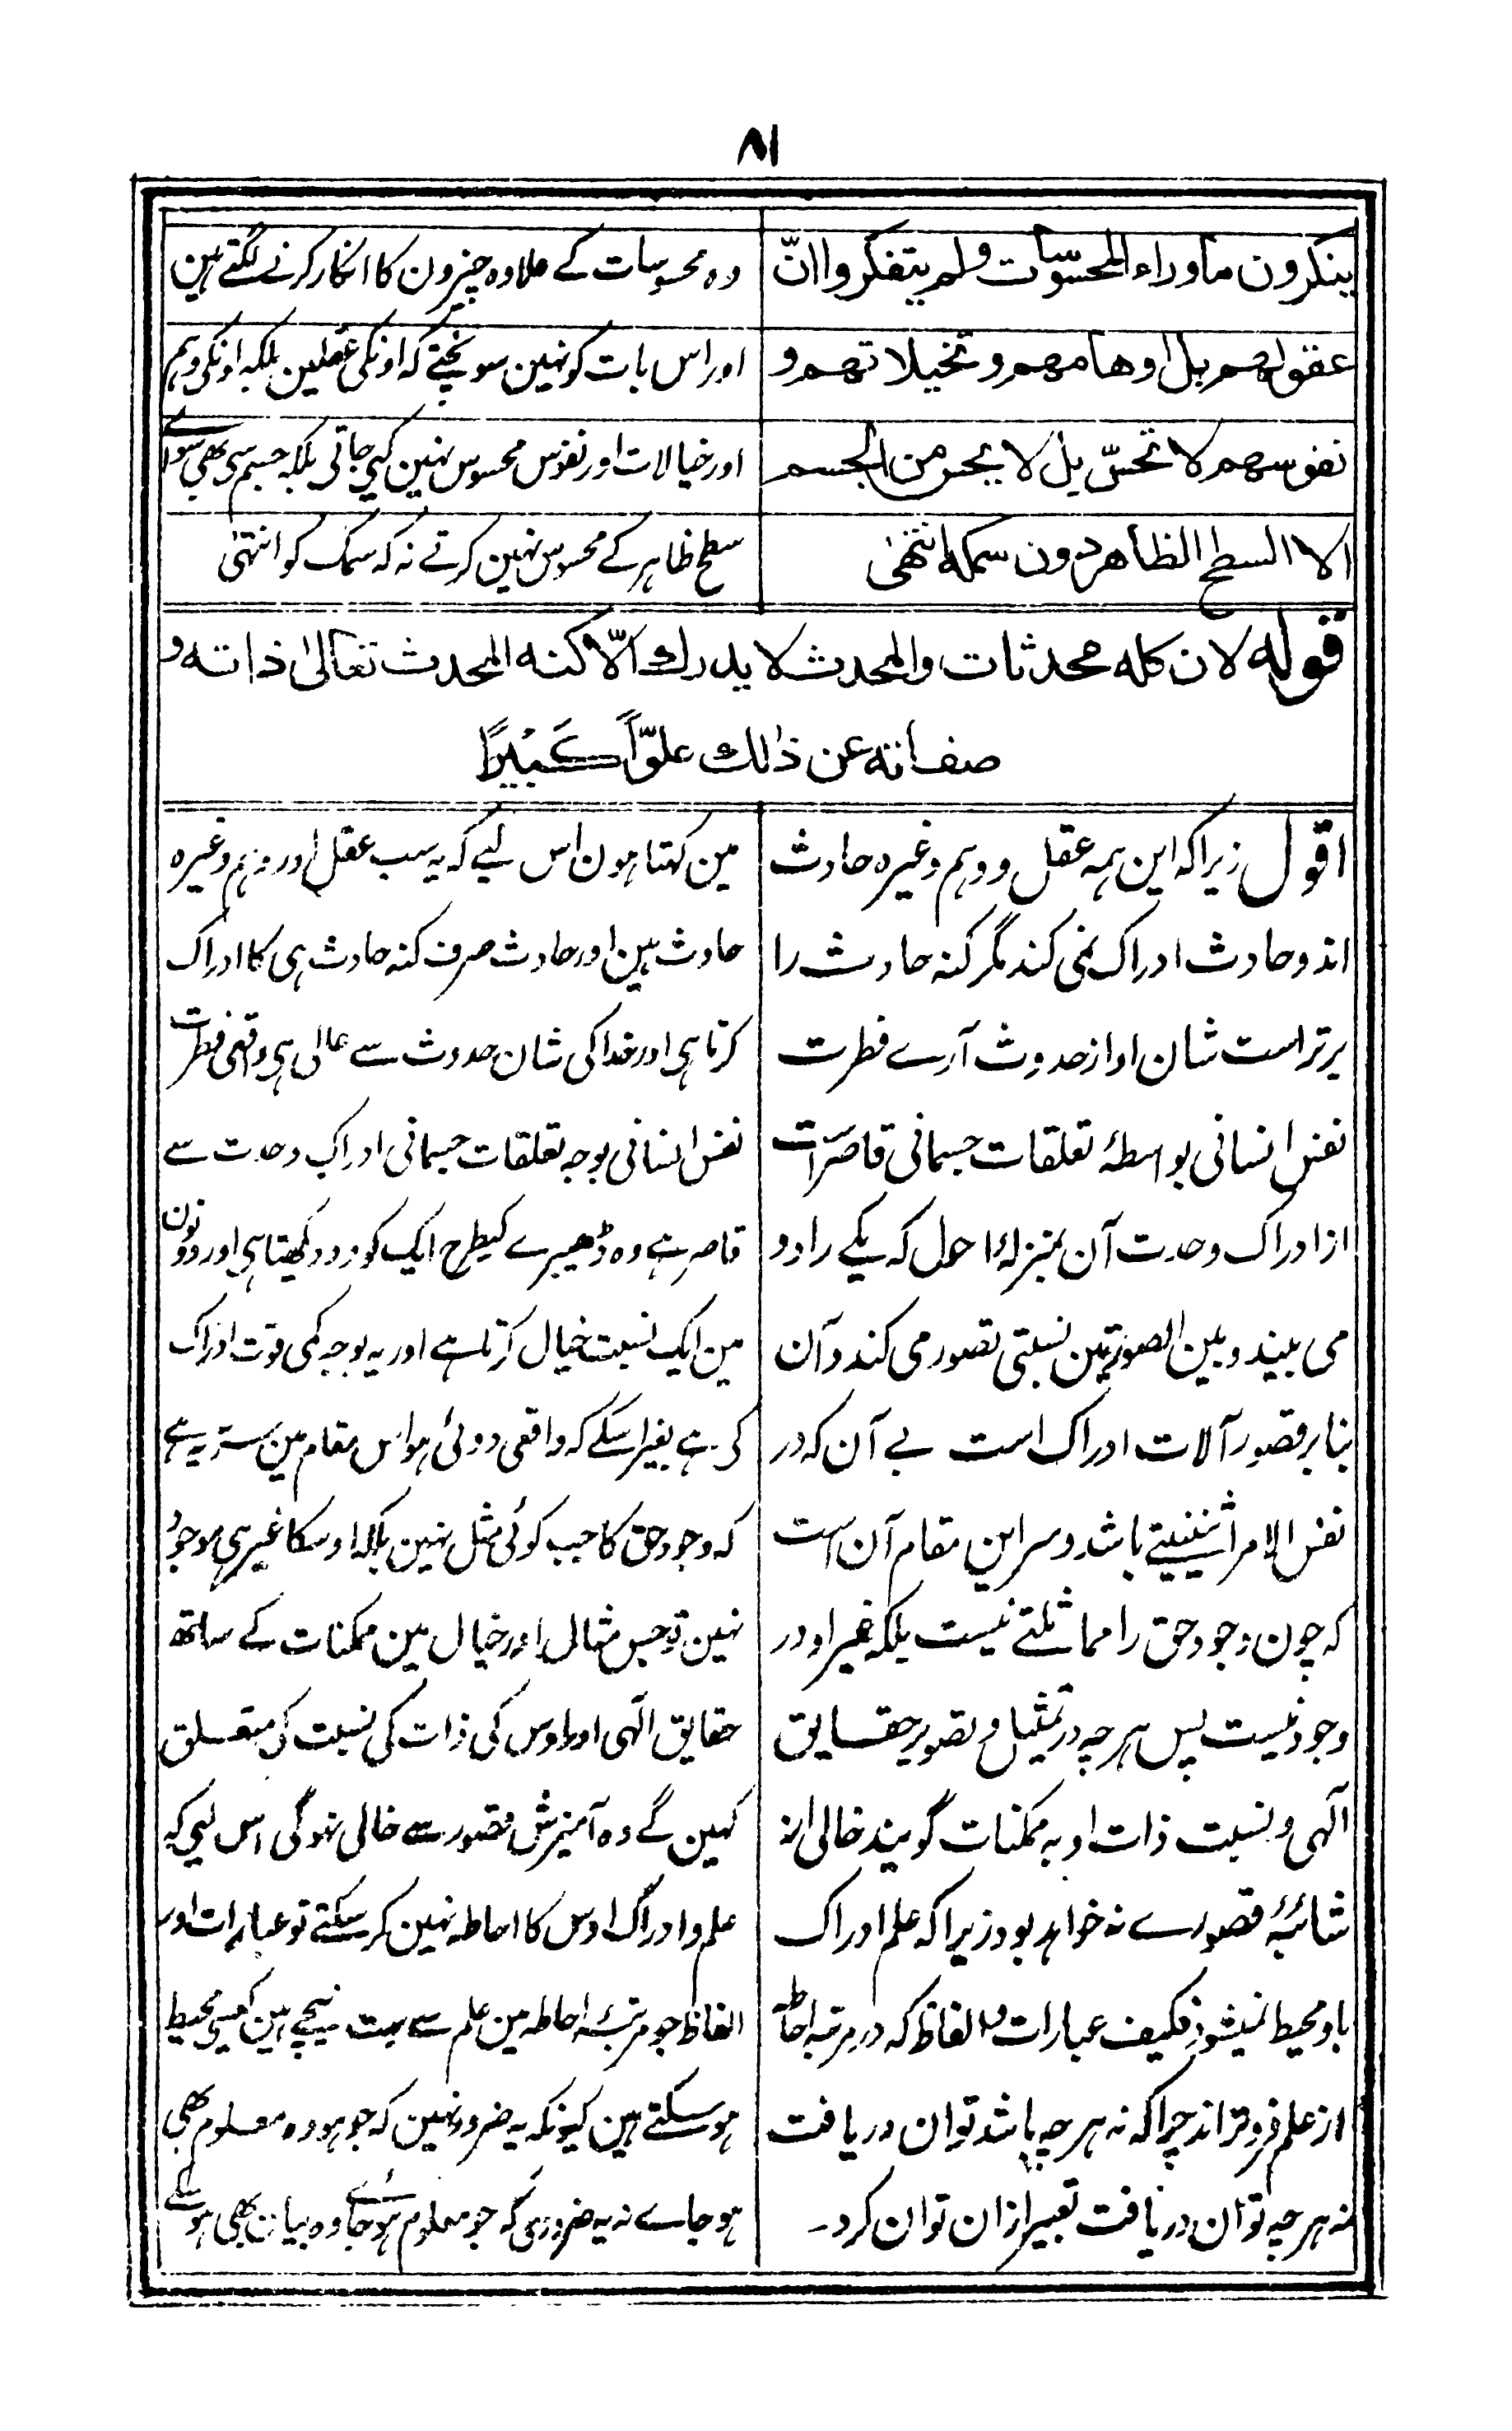 ۸۱
ینکرون ما وراء المحسوّسات ولم یتفکروا انّ
عقولهم بل اوهامهم وتخیلاتهم و
نفوسهم لا تحسّ بل لا یحس من الجسم
الا السطح الظاهر دون سمکه انتهیٰ
وہ محسوسات کے علاوہ چیزون کا انکار کرنے لگتے ہین
اور اس بات کو نہین سونچتے کہ اونکی عقلین بلکہ اونکی وہم
اور خیالات اور نفوس محسوس نہین کیے جاتی بلکہ جسم سی بھی سوائے
سطح ظاہر کے محسوس نہین کرتے نہ کہ سمک کو انتہیٰ
قوله لان کله محدثات والمحدث لا یدرك الّا کنه المحدث تعالیٰ ذاته و
صفاته عن ذٰلك علوّاً کَبِیْرًا
اقول زیراکہ این ہمہ عقل و وہم وغیرہ حادث
اند و حادث ادراک نمی کند مگر کنہ حادث را
برتر است شان او از حدوث آرے فطرت
نفس انسانی بواسطۂ تعلقات جسمانی قاصر است
از ادراک وحدت آن بمنزلۂ احول کہ یکے را دو
می بیند و بین الصورتین نسبتی تصور می کند و آن
بنابر قصور آلات ادراک است بے آن کہ در
نفس الامر اثنینیتے باشد و سر این مقام آن است
کہ چون وجود حق را مماثلتے نیست بلکہ غیر او در
وجود نیست پس ہر چہ در تمثیل و تصویر حقایق
آلہی و نسبت ذات او بہ ممکنات گویند خالی از
شائبۂ قصورے نہ خواہد بود زیراکہ علم ادراک
باو محیط نمیشود فکیف عبارات و الفاظ کہ در مرتبہ احاطہ
از علم فروتر اند چراکہ نہ ہر چہ باشد توان دریافت
نہ ہر چہ توان دریافت تعبیر ازان توان کرد۔
مین کہتا ہون اس لیے کہ یہ سب عقل اور وہم وغیرہ
حادث ہین اور حادث صرف کنہ حادث ہی کا ادراک
کرتا ہی اور خدا کی شان حدوث سے عالی ہی واقعی فطرت
نفس انسانی بوجہ تعلقات جسمانی ادراک وحدت سے
قاصر ہے وہ ڈھیرے کیطرح ایک کو دو دیکھتا ہی اور دونون
مین ایک نسبت خیال کرتا ہے اور یہ بوجہ کمی قوت ادراک
کی ہے بغیر اسکے کہ واقعی دوئی ہو اس مقام مین ستر یہ ہے
کہ وجود حق کا جب کوئی مثل نہین بلکہ اوسکا غیر ہی موجود
نہین تو جس مثال اور خیال مین ممکنات کے ساتھ
حقایق الہی اور اوس کی ذات کی نسبت کی متعلق
کہین گے وہ آمیزش قصور سے خالی نہوگی اس لیے کہ
علم و ادراک اوس کا احاطہ نہین کر سکتے تو عبارات اور
الفاظ جو مرتبۂ احاطہ مین علم سے بہت نیچے ہین کیسے محیط
ہو سکتے ہین کیونکہ یہ ضرور نہین کہ جو ہو وہ معلوم بھی
ہو جاے نہ یہ ضرور ہی کہ جو معلوم ہو جائے وہ بیان بھی ہو سکے